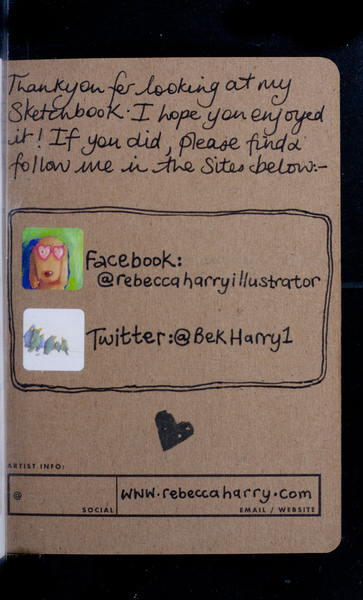 Thankyou for looking at my
Sketchbook. I hope you enjoyed
it! If you did, please find &
follow me in the Sites below:-
Facebook:
@rebeccaharryillustrator
Twitter:@BekHarry1
ARTIST INFO:
@
www.rebeccaharry.com
SOCIAL
EMAIL / WEBSITE